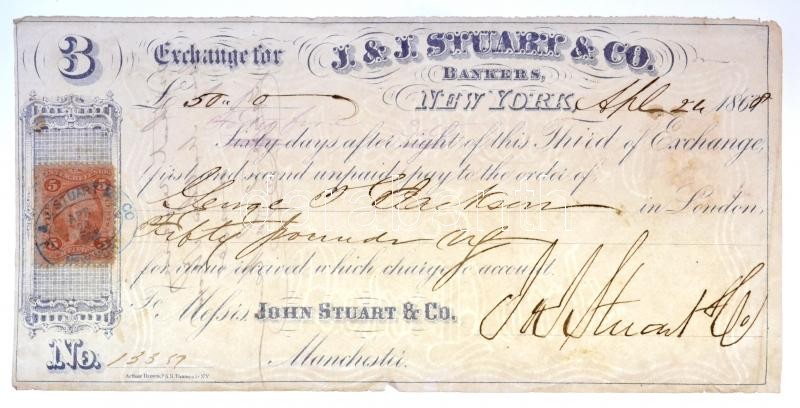 3
Exchange for J. & J. STUART & CO.
BANKERS,
£ 50.. 0 NEW YORK, Apl 24 1868
Sixty days after sight of this Third of Exchange,
first and second unpaid, pay to the order of
George F. Jackson in London,
Fifty pounds stg
for value received which charge to account.
To Messrs. JOHN STUART & CO. J & J Stuart & Co
No. 13357 Manchester.
5 5
J. & J. STUART & CO
APR
5 5